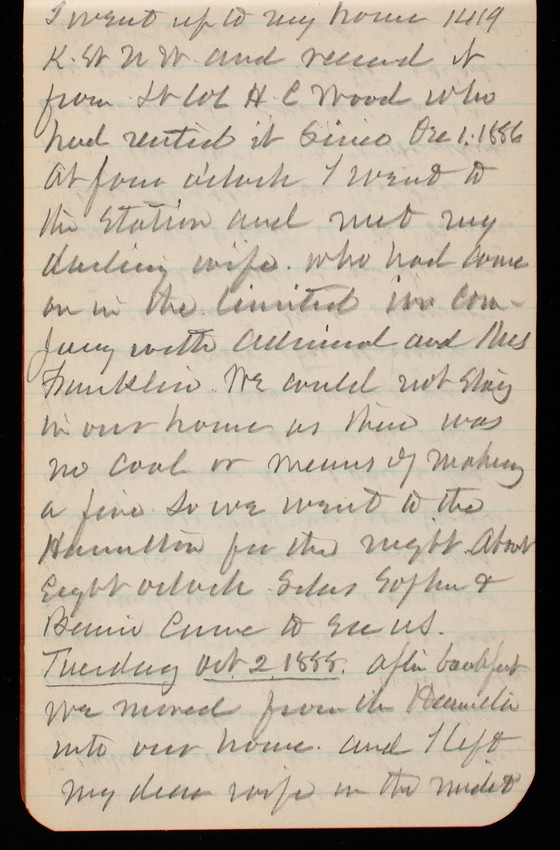 I went up to my home 1419
K. St N W. and received it
from Lt Col H C Wood who
had rented it since Dec 1. 1886
At four o'clock I went to
the Station and met my
darling wife. who had come
on in the limited in com-
pany with Admiral and Mrs
Franklin. We could not stay
in our home as there was
no coal or means of making
a fire So we went to the
Hamilton for the night. About
Eight o'clock Silas Sophie &
Bernie Came to see us.
Tuesday Oct. 2 1888. After breakfast
we moved from the Hamilton
into our home. and I left
my dear wife in the midst